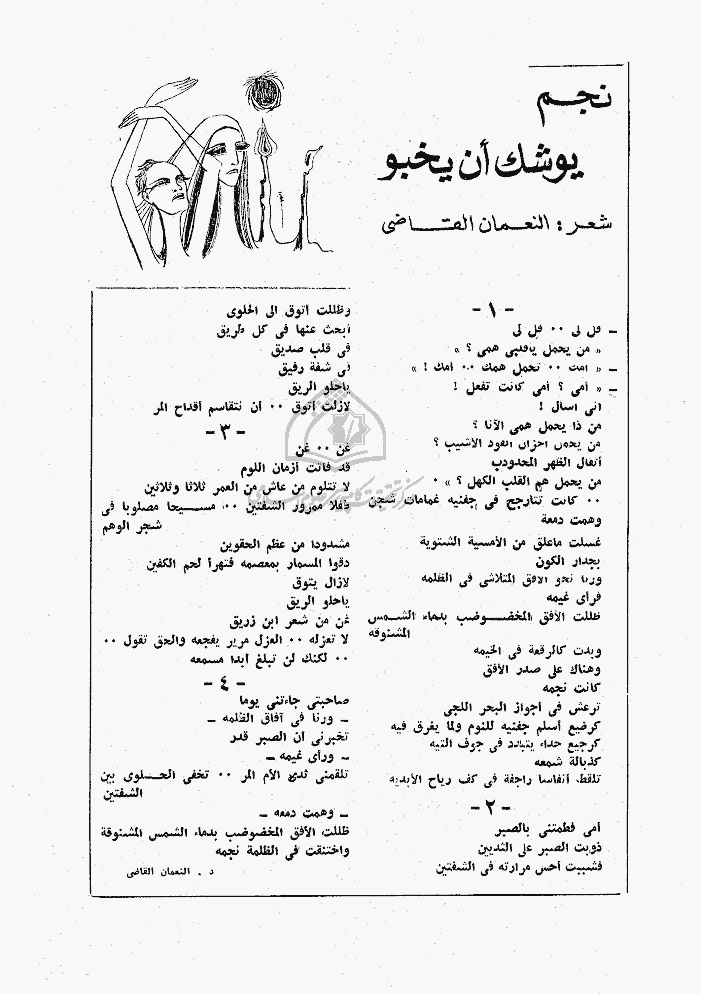 نجم
يوشك أن يخبو
شعر : النعمان القاضى
- ١ -
ـ قل لى ٠٠ قل لى
« من يحمل ياقلبى همى ؟ »
ـ « أمك ٠٠ تحمل همك ٠٠ أمك ! »
ـ « أمى ؟ أمى كانت تفعل !
انى أسأل !
من ذا يحمل همى الآنا ؟
من يحمل أحزان الفود الأشيب ؟
أثقال الظهر المحدودب
من يحمل هم القلب الكهل ؟ » ٠
٠٠ كانت تتأرجح فى جفنيه غمامات شجن
وهمت دمعة
غسلت ماعلق من الأمسية الشتوية
بجدار الكون
ورنا نحو الأفق المتلاشى فى الظلمه
فرأى غيمه
ظللت الأفق المخضوضب بدماء الشمس
المشنوقة
وبدت كالرقعة فى الخيمه
وهناك على صدر الأفق
كانت نجمه
ترعش فى أجواز البحر اللجى
كرضيع أسلم جفنيه للنوم ولما يغرق فيه
كرجيع حداء يتبدد فى جوف التيه
كذبالة شمعه
تلقط أنفاسا راجفة فى كف رياح الأبديه
- ٢ -
أمى فطمتنى بالصبر
ذوبت الصبر على الثديين
فشببت أحس مرارته فى الشفتين
وظللت أتوق الى الحلوى
أبحث عنها فى كل طريق
فى قلب صديق
فى شفة رفيق
ياحلو الريق
لازلت أتوق ٠٠ أن نتقاسم أقداح المر
- ٣ -
غن ٠٠ غن
قد فاتت أزمان اللوم
لا تتلوم من عاش من العمر ثلاثا وثلاثين
طفلا ممرور الشفتين ٠٠ مسيحا مصلوبا فى
شجر الوهم
مشدودا من عظم الحقوين
دقوا المسمار بمعصمه فتهرأ لحم الكفين
لازال يتوق
ياحلو الريق
غن من شعر ابن زريق
لا تعزله ٠٠ العزل مرير يفجعه والحق تقول ٠٠
٠٠ لكنك لن تبلغ أبدا مسمعه
- ٤ -
صاحبتى جاءتنى يوما
ـ ورنا فى آفاق الظلمه ـ
تخبرنى أن الصبر قدر
ـ ورأى غيمه ـ
تلقمنى ثدى الأم المر ٠٠ تخفى الحلوى بين
الشفتين
ـ وهمت دمعه ـ
ظللت الأفق المخضوضب بدماء الشمس المشنوقة
واختنقت فى الظلمة نجمه
د . النعمان القاضى